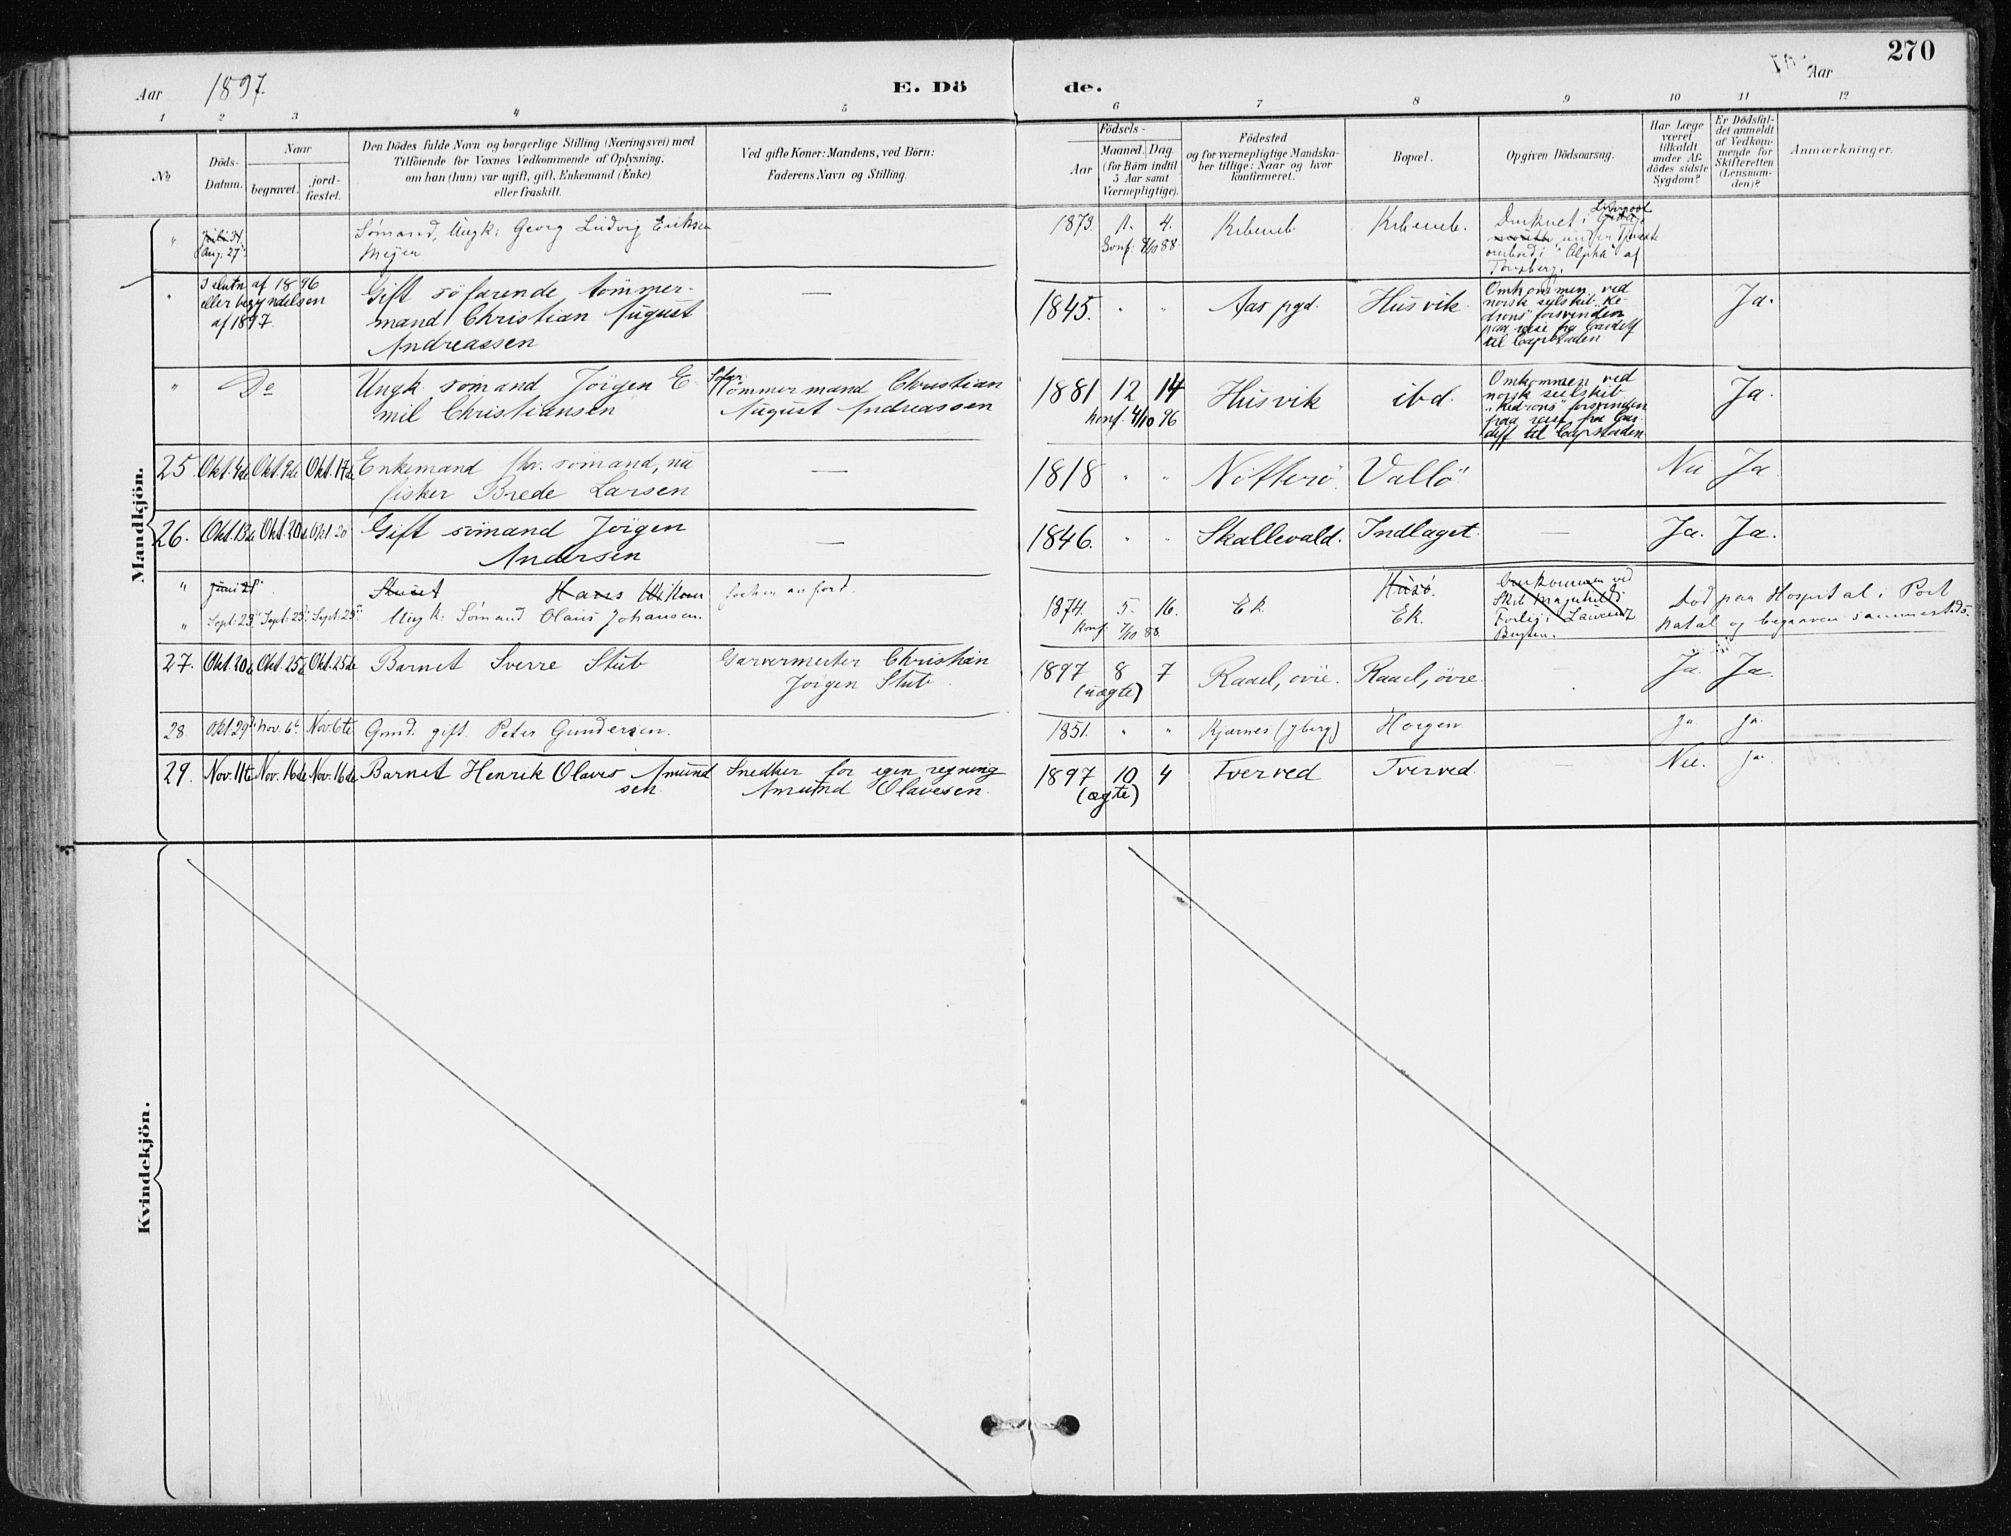 270
Aar 1897. E. Dö de. Aar
1 2 3 4 5 6 7 8 9 10 11 12
No
Döds-
Datum.
Naar
begravet.
jord-
fæstet.
Den Dödes fulde Navn og borgerlige Stilling (Næringsvei) med
Tilföiende for Voxnes Vedkommende af Oplysning,
om han (hun) var ugift, gift, Enkemand (Enke)
eller fraskilt.
Ved gifte Koner: Mandens, ved Börn:
Faderens Navn og Stilling.
Födsels-
Aar
Maaned. Dag.
(for Börn indtil
5 Aar samt
Værnepligtige).
Födested
og for værnepligtige Mandska-
ber tillige: Naar og hvor
konfirmeret.
Bopæl.
Opgiven Dödsaarsag.
Har Læge
været
tilkaldt
under Af-
dödes sidste
Sygdom?
Er Dödsfal-
det anmeldt
af Vedkom-
mende for
Skifteretten
(Lensman-
den)?
Anmærkninger.
Mandkjön.
" Aug. 27 Sømand, Ungk: Georg Ludvig Eriksen
Meyer
1873. 4.
Konf. 88.
Druknet i Liverpool
ombord i "Alpha" af
Tønsberg.
" I slutn af 1896
eller begyndelsen
af 1897.
Gift söfarende tömmer-
mand Christian August
Andreassen
—
1845. " " Aas pgd. Husvik.
Omkommen ved
norsk seilskib "Ke-
drons" forsvinden
paa reise fra Cardiff
til Capstaden
Ja.
" Do Ungk. sömand Jörgen E-
mil Christiansen
Söfar.
tömmermand Christian
August Andreassen
1881 12 14
Konf. 4/10 96
Husvik ibd.
Omkommen ved
norsk seilskib
"Kedrons" forsvinden
paa reise fra Car-
diff til Capstaden
Ja.
25. Okt. 4de Okt. 9de Okt. 17de Enkemand fhv. sömand, nu
fisker Brede Larsen
—
1818 " " Nötterö. Vallö Nei Ja.
26. Okt. 13de Okt. 20de Okt 20 Gift sömand Jörgen
Andersen
—
1846. " " Skallevald. Indlaget. — Ja. Ja.
" Juni 21. Hans
Husö.
Omkommen ved
Skib
Forlis i
" Sept. 23 Sept. 25 Sept. 25 Ungk: Sømand Olaus Johansen.
1874. 5. 16.
Konf. 7/10 88.
Ek Ek.
Død paa Hospital i Port
Natal og begraven sammesteds.
27. Okt. 20de Okt. 25de Okt. 25de Barnet Sverre Stub
Garvermester Christian
Jörgen Stub.
1897 8 7
(uægte)
Raael, övre. Raael, övre. Ja. Ja.
28 Okt. 29de Nov. 6te Nov. 6te Gmd. gift. Peter Gundersen.
1851. " " Kjærnes (Yberg) Horgen. Ja Ja.
29. Nov. 11te Nov. 16de Nov. 16de Barnet Henrik Olaves Amund
sen.
Snedker for egen regning
Amund Olavesen.
1897 10 4
(ægte)
Tverved Tverved. — Nei. Ja.
Kvindekjön.